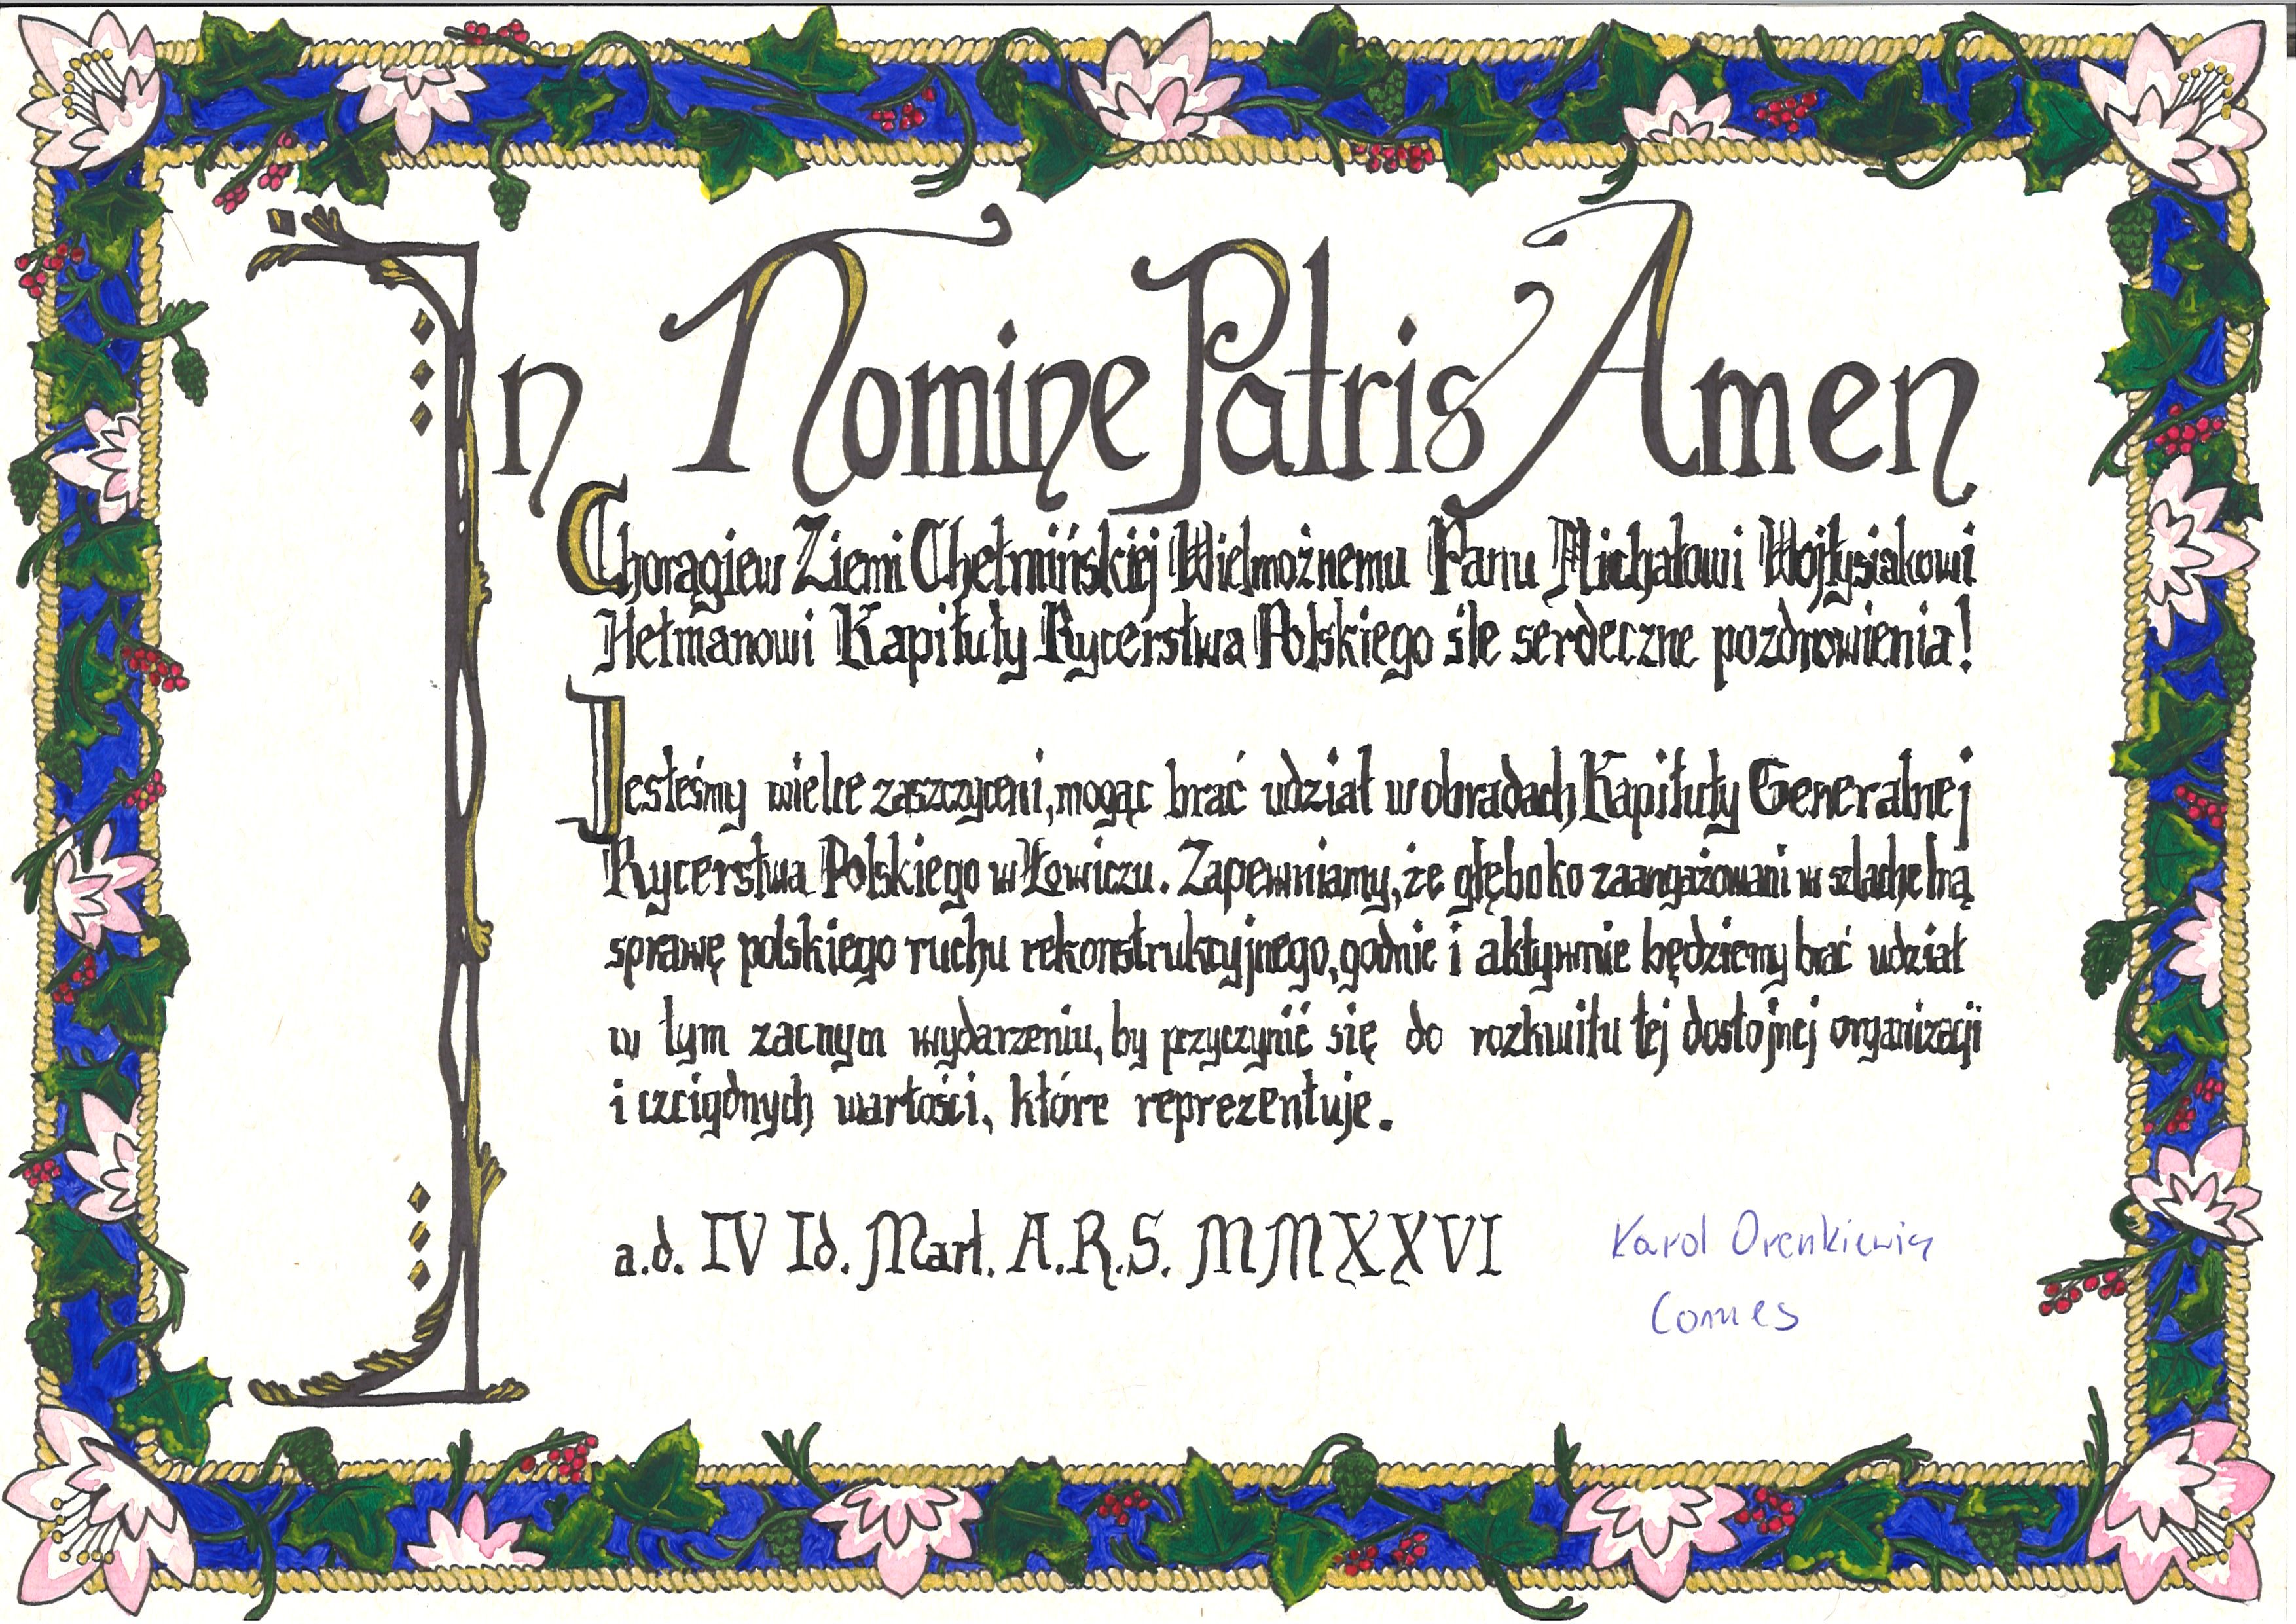 In Nomine Patris Amen
Chorągiew Ziemi Chełmińskiej Wielmożnemu Panu Michałowi Wojtysiakowi
Hetmanowi Kapituły Rycerstwa Polskiego śle serdeczne pozdrowienia!
Jesteśmy wielce zaszczyceni, mogąc brać udział w obradach Kapituły Generalnej
Rycerstwa Polskiego w Łowiczu. Zapewniamy, że głęboko zaangażowani w szlachetną
sprawę polskiego ruchu rekonstrukcyjnego, godnie i aktywnie będziemy brać udział
w tym zacnym wydarzeniu, by przyczynić się do rozkwitu tej dostojnej organizacji
i czcigdnych wartości, które reprezentuje.
a.d. IV Id. Mart. A.R.S. MMXXVI
Karol Orenkiewicz
Comes